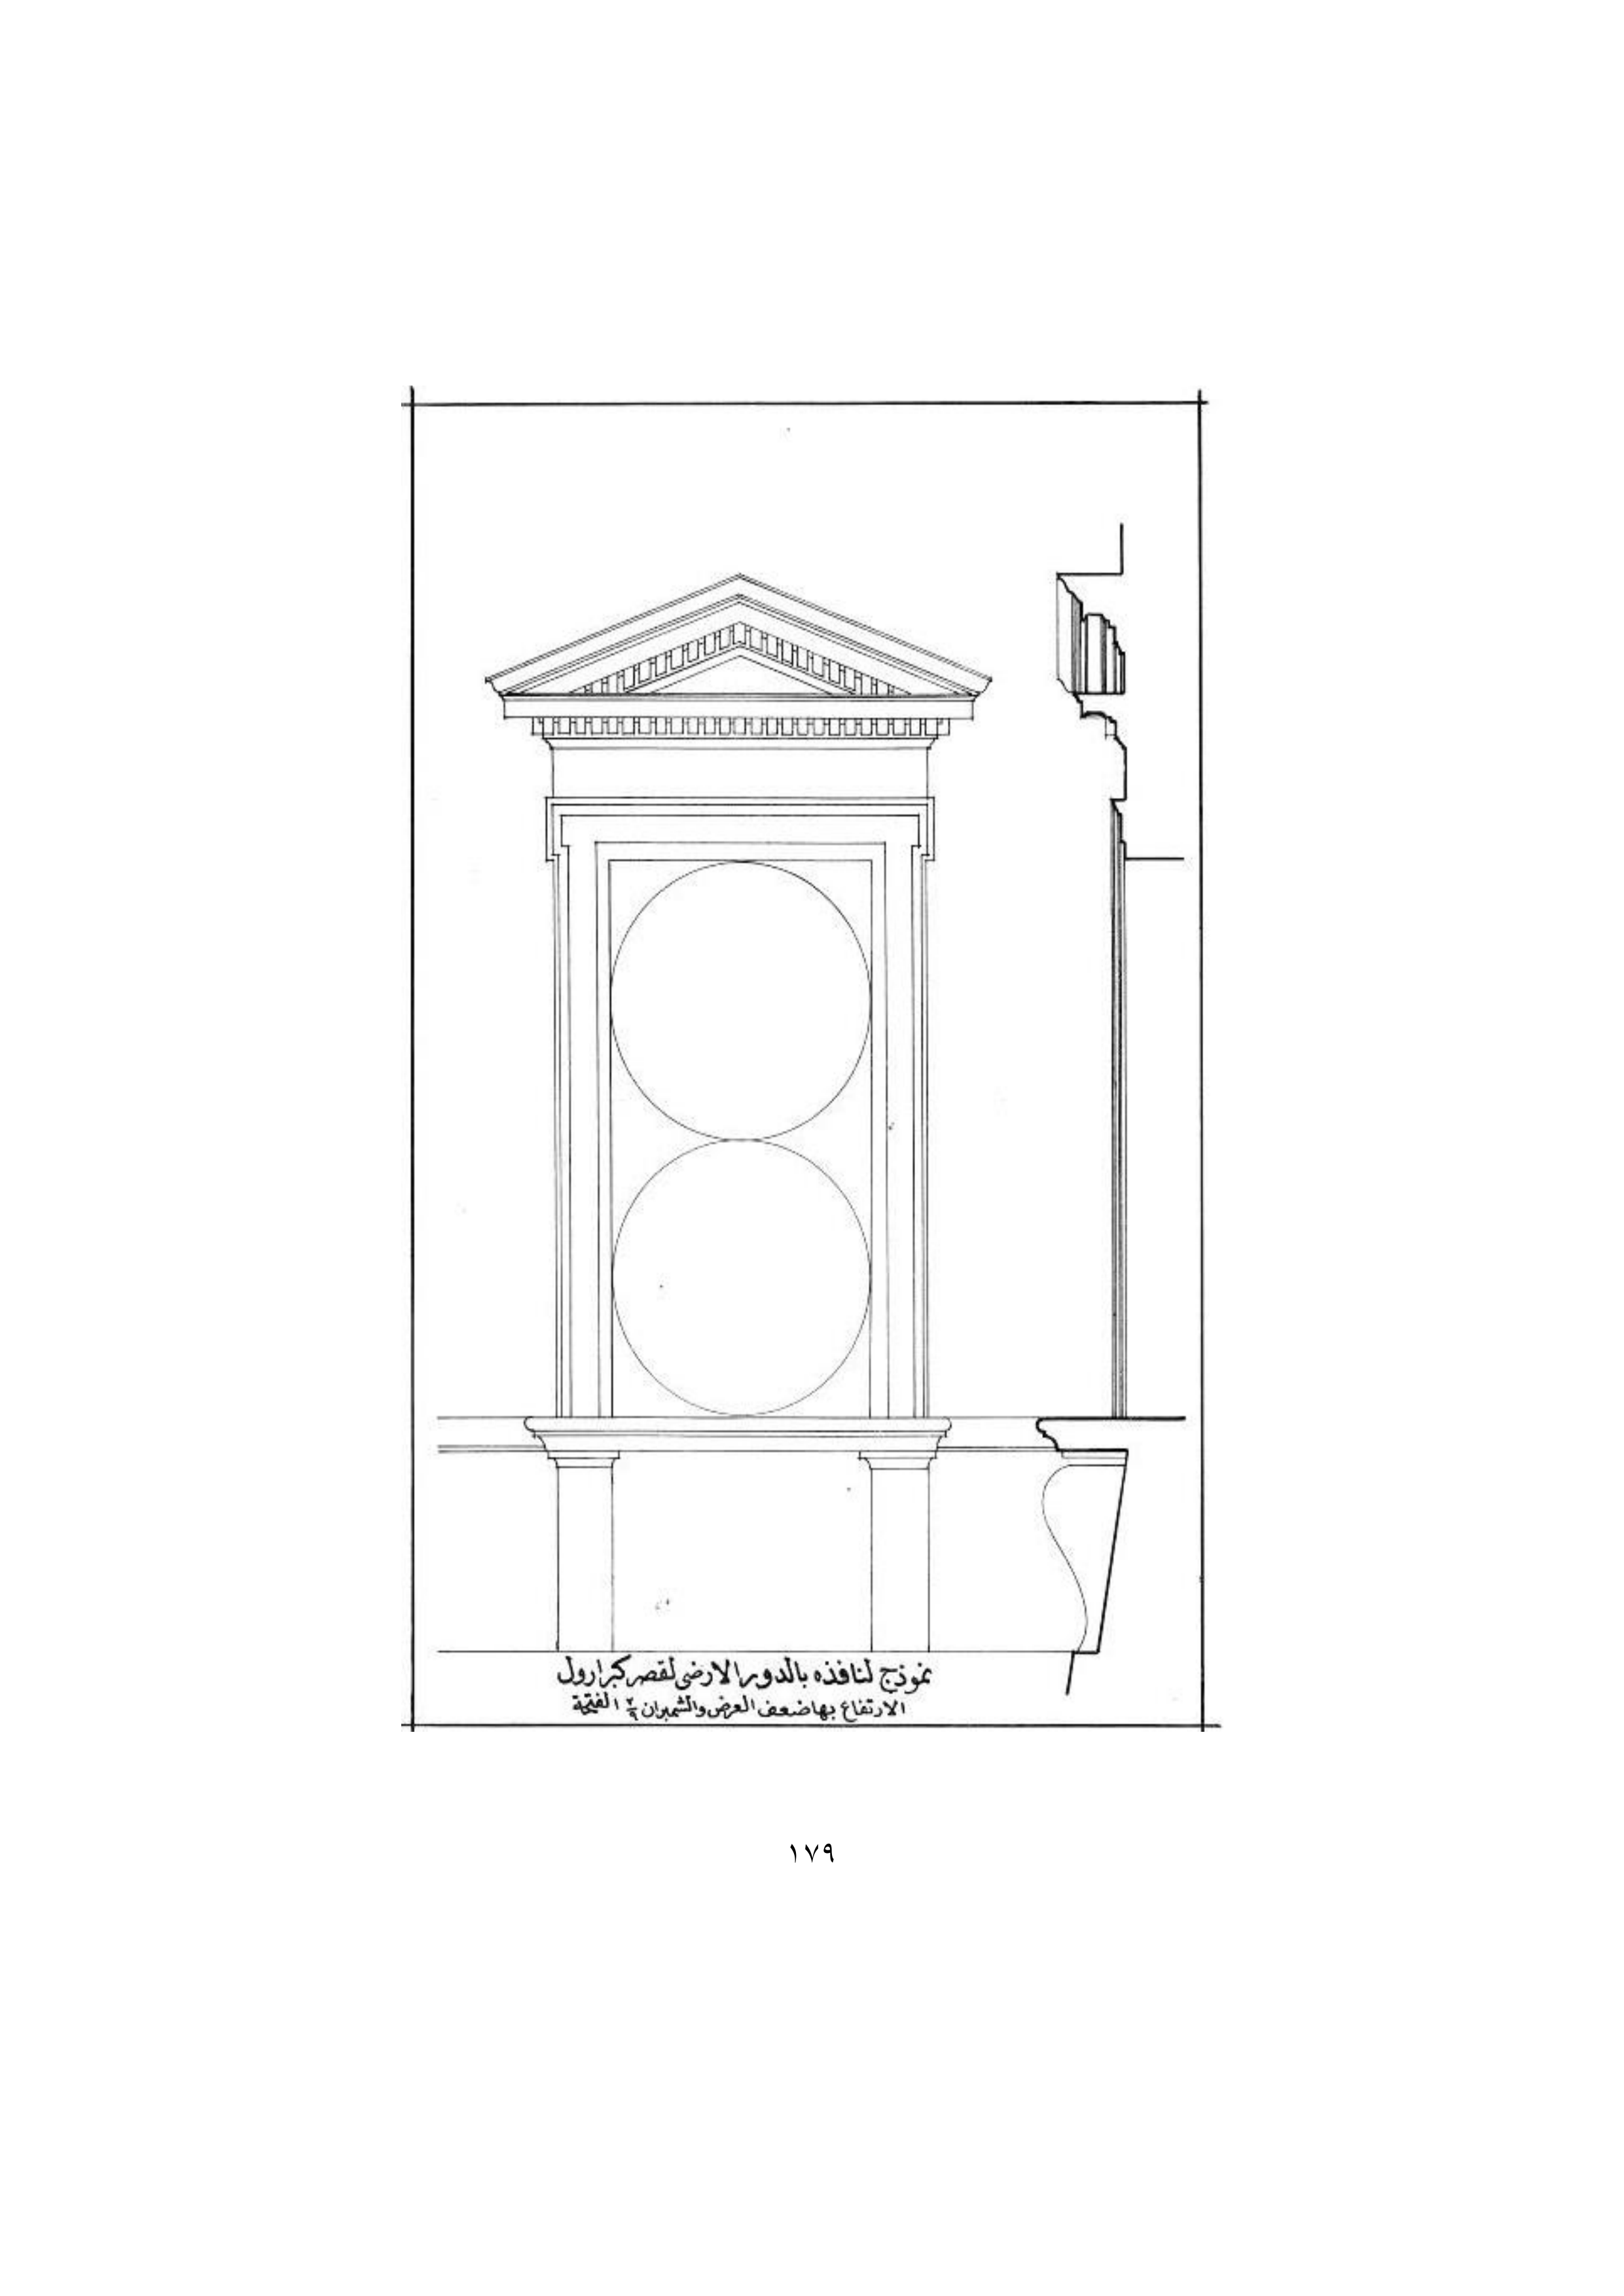 نموذج لنافذه بالدور الارضى لقصر كبرارول
الارتفاع بها ضعف العرض والشمبران ٢/٩ الفتحة
١٧٩